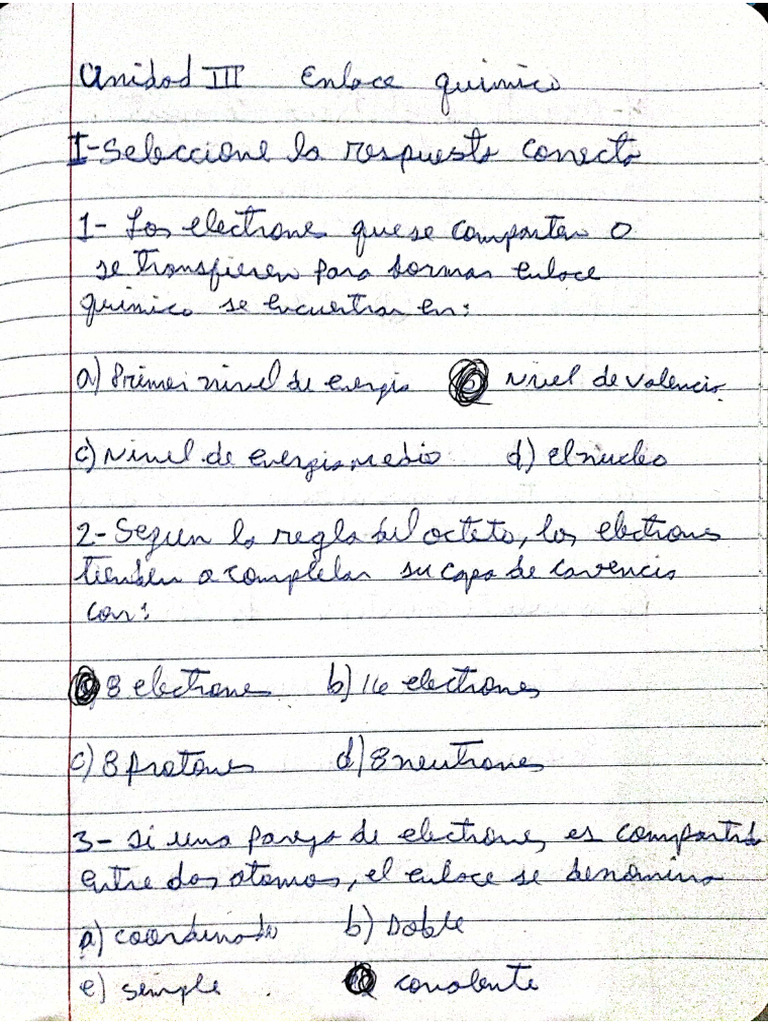 Unidad III Enlace quimico
I-Seleccione la respuesta correcta
1- Los electrones que se comparten o
se transfieren para formar enlace
quimico se encuentran en:
a) Primer nivel de energia Nivel de valencia.
c) Nivel de energia medio d) El nucleo
2- Segun la regla del octeto, los electrones
tienden a completar su capa de
con:
8 electrones b) 16 electrones
c) 8 protones d) 8 neutrones
3- Si una pareja de electrones es compartida
entre dos atomos, el enlace se denomina
a) coordinado b) Doble
e) simple covalente